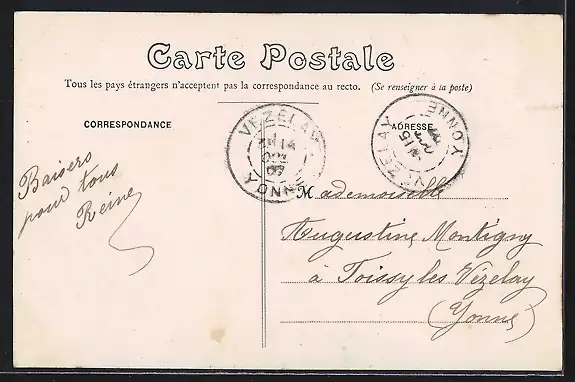 Carte Postale
Tous les pays étrangers n'acceptent pas la correspondance au recto. (Se renseigner à la poste)
CORRESPONDANCE
ADRESSE
VEZELAY
YONNE
VEZELAY
YONNE
Baisers
pour tous
Reine
Mademoiselle
Augustine Montigny
à Foissy les Vézelay
(Yonne)